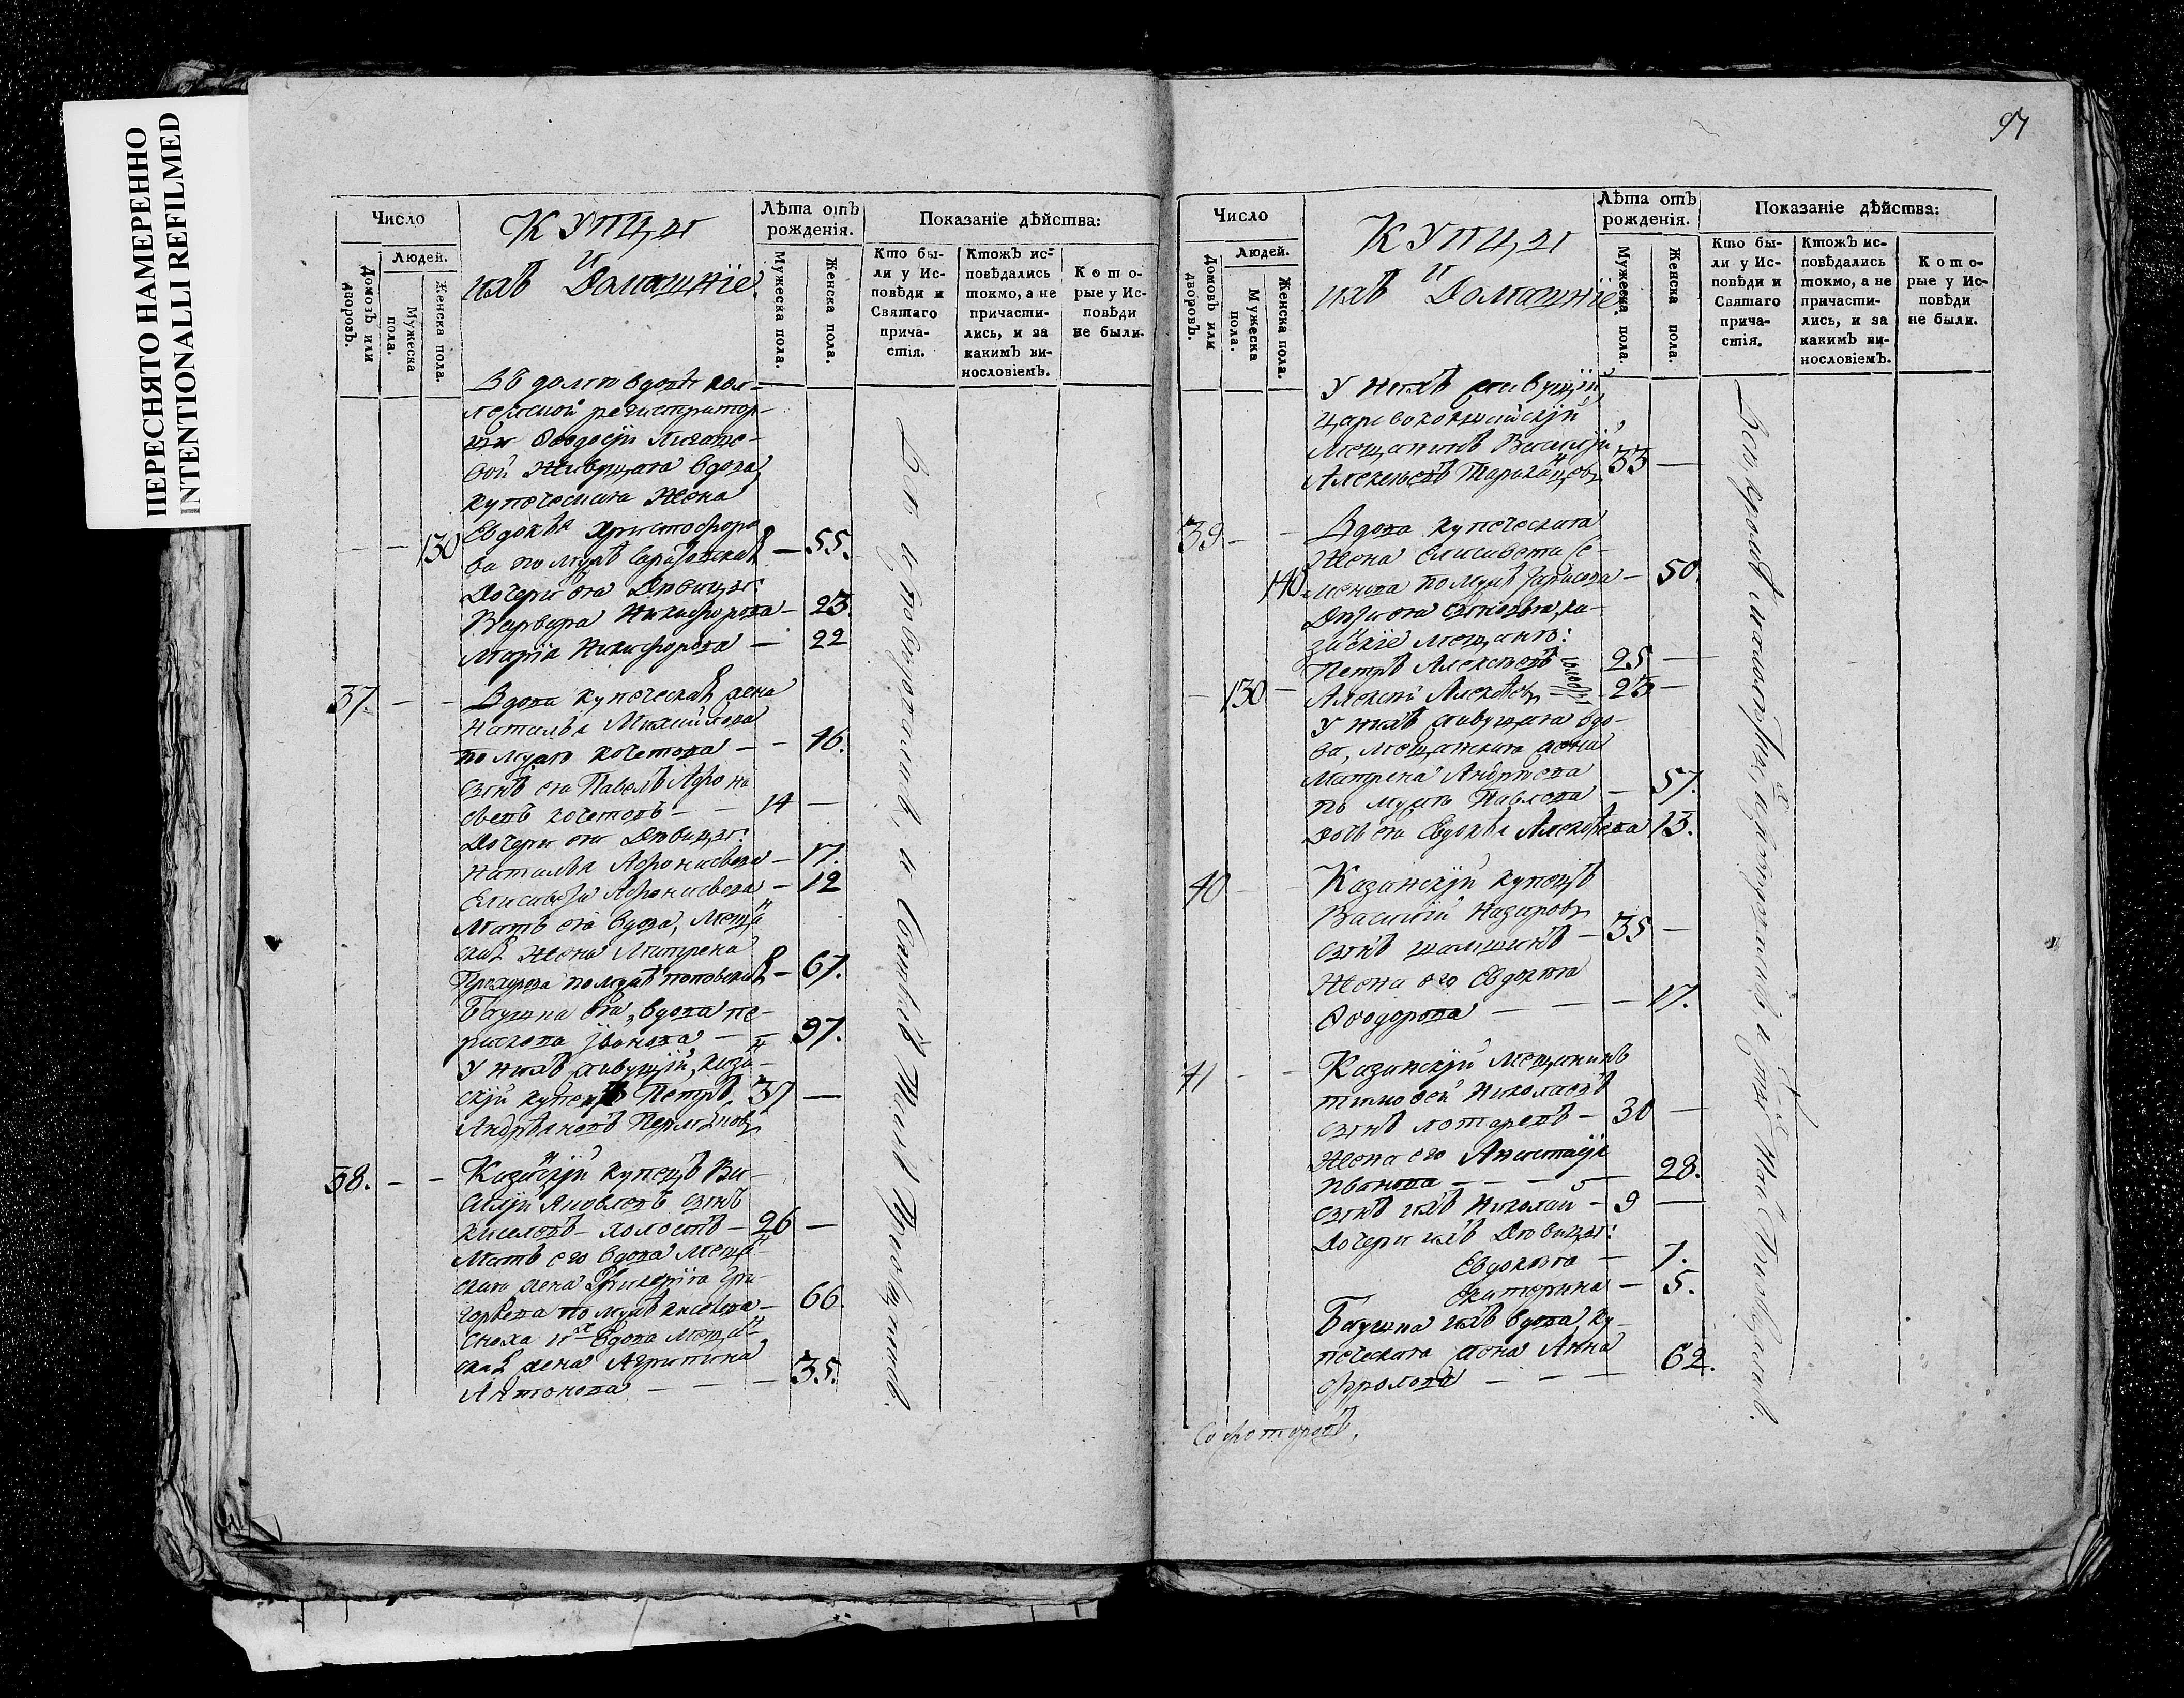 ПЕРЕСНЯТО НАМЕРЕННО
INTENTIONALLI REFILMED
Число
Людей.
Домовъ или дворовъ.
Мужеска пола.
Женска пола.
Купцы
и
ихъ Домашніе
Лѣта отъ рожденія.
Мужеска пола.
Женска пола.
Показаніе дѣйства:
Кто были у Исповѣди и Святаго причастія.
Ктожъ исповѣдались токмо, а не причастились, и за какимъ винословіемъ.
Которые у Исповѣди не были.
Въ домѣ вдовы кол-
лежской регистратор-
ши Ѳеодосіи
вой Живущая вдова,
купеческая Жена
130 Евдокѣя Христофоро
ва по мужѣ — 55.
Дочери ея Дѣвицы:
Варвара Никифорова — 23.
Марія Никифорова — 22
37. — — Вдова купеческая жена
Наталья Михайлова
по мужѣ Кочетова — — 46.
сынъ ея Павелъ Афона
сьевъ Кочетовъ — 14 —
Дочери ея Дѣвицы:
Наталья Афонасьева — 17.
Елисавета Афонасьева — 12
Мать ея вдова, Мещан
ская Жена Матрена
Прохорова по мужѣ — 67.
Баушка ея, вдова пе-
Иванова — — 97.
У нихъ живущій, казан-
скій купецъ Петръ 37 —
Андреяновъ
38. — — Казанскій купецъ Ва-
силій Яковлевъ сынъ
Киселевъ — холостъ — 26 —
Мать его вдова Мещан-
ская жена Гликерія Гри-
горьева по мужѣ Киселева — 66.
Сноха ихъ вдова Мещан-
ская жена Агрипина
Антонова — — — 35.
Всѣ исповѣдались и Святыхъ Таинъ Пріобщились.
97
Число
Людей.
Домовъ или дворовъ.
Мужеска пола.
Женска пола.
Купцы
и
ихъ Домашніе
Лѣта отъ рожденія.
Мужеска пола.
Женска пола.
Показаніе дѣйства:
Кто были у Исповѣди и Святаго причастія.
Ктожъ исповѣдались токмо, а не причастились, и за какимъ винословіемъ.
Которые у Исповѣди не были.
У нихъ живущій
царевококшайскій
Мещанинъ Василій
Алексѣевъ 33 —
39 — — Вдова купеческая
Жена Елисавета Се-
140. менова по мужѣ — 50.
Дѣти ея сыновья, ка-
занскіе мещане:
Петръ Алексѣевъ 25 —
— 130 — Алексѣй Алексѣевъ 23 —
У нихъ живущая вдо-
ва, мещанская жена
Матрена Андреева
по мужѣ Павлова — 57.
дочь ея Евдокѣя Алексѣева 13.
40 — — Казанскій купецъ
Василій Назаровъ
сынъ — 35 —
Жена его Евдокія
Ѳеодорова — — — 17.
41 — — Казанскій Мещанинъ
Тимоѳей Николаевъ
сынъ — 30 —
Жена его Анастасія
Иванова — — — 28.
сынъ ихъ Николай — 9 —
Дочери ихъ Дѣвицы:
Евдокія — 7.
Екатерина — 5.
Баушка ихъ вдова, ку-
печеская жена Анна
Фролова — — — 62.